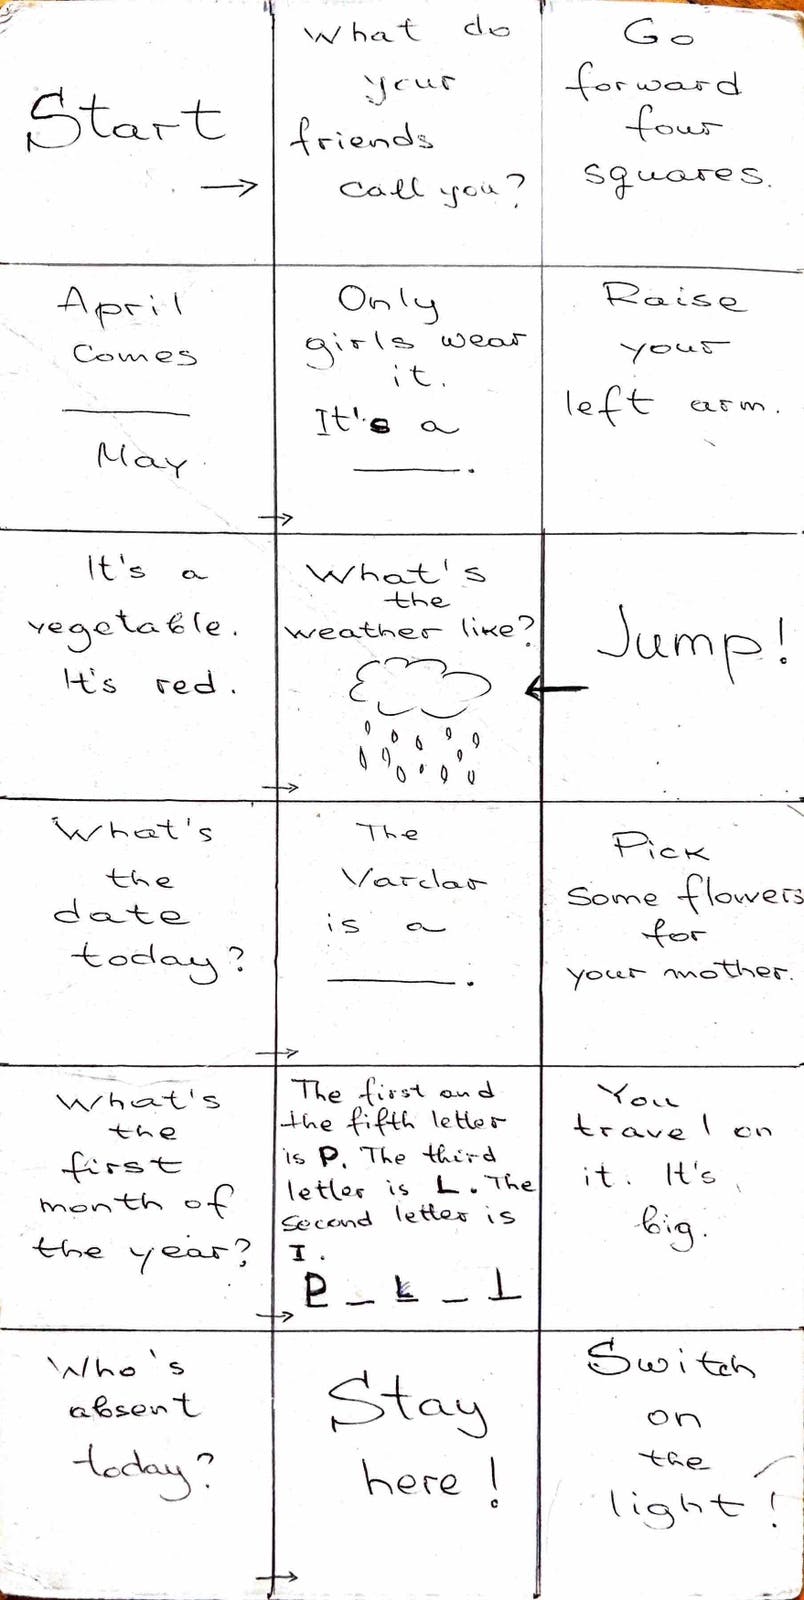 Start
What do
your
friends
call you?
Go
forward
four
squares.
April
comes
May.
Only
girls wear
it.
It's a
.
Raise
your
left arm.
It's a
vegetable.
It's red.
What's
the
weather like?
Jump!
What's
the
date
today?
The
Vardar
is a
.
Pick
some flowers
for
your mother.
What's
the
first
month of
the year?
The first and
the fifth letter
is P. The third
letter is L. The
second letter is
I.
P _ L _ T
You
travel on
it. It's
big.
Who's
absent
today?
Stay
here!
Switch
on
the
light!